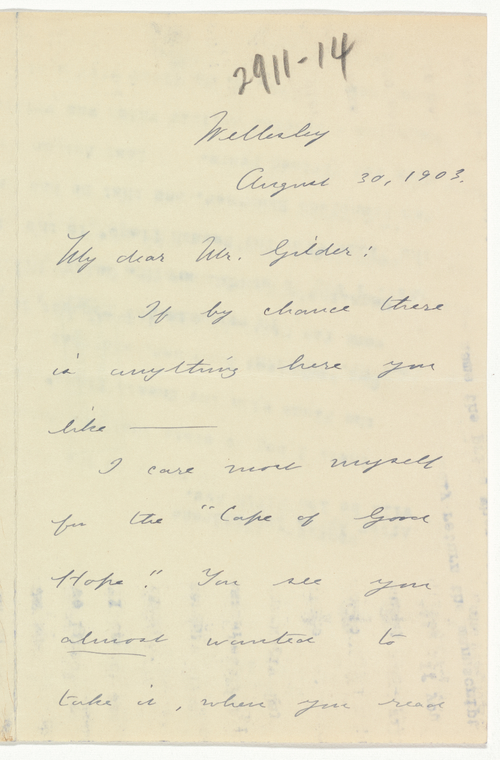 2911-14
Wellesley
August 30, 1903.
My dear Mr. Gilder:
If by chance there
is anything here you
like ——
I care most myself
for the "Cape of Good
Hope". You see you
almost wanted to
take it, when you read